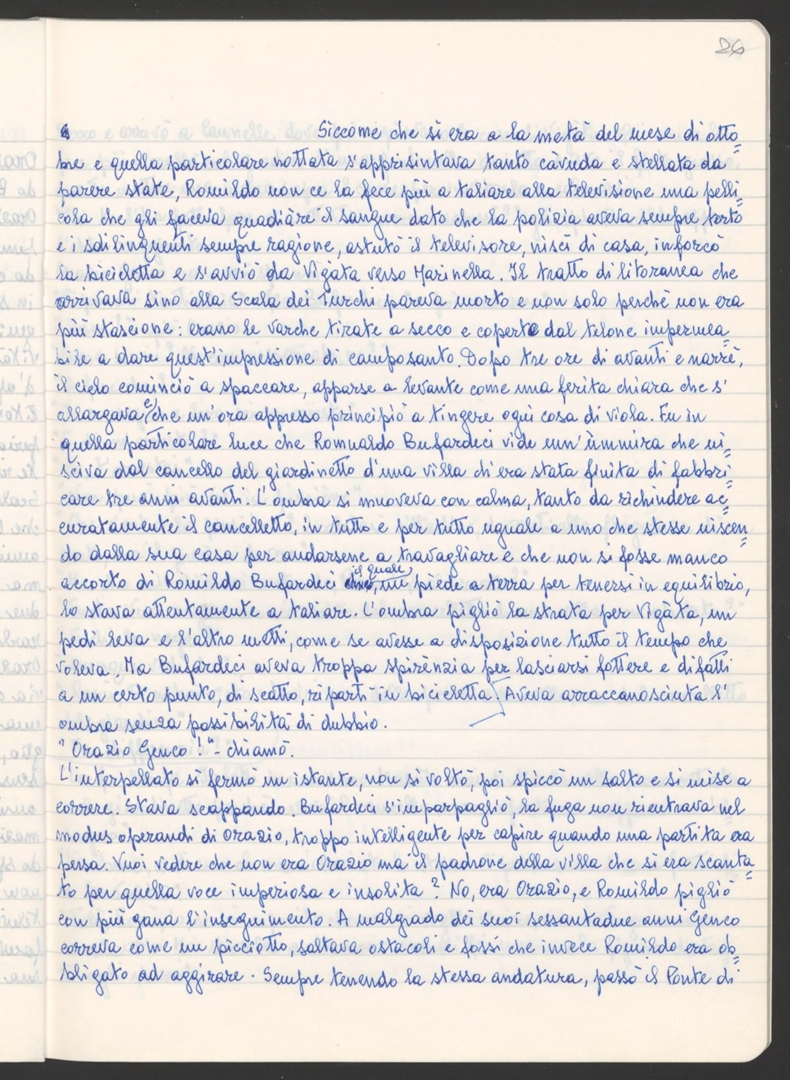 26
Siccome che si era a la metà del mese di otto=
bre e quella particolare nottata s'apprisintava tanto càvuda e stellata da
parere state, Romildo non ce la fece più a taliare alla televisione una pelli=
cola che gli faceva quadiàre il sangue dato che la polizia aveva sempre torto
e i sdilinquenti sempre ragione, astutò il televisore, niscì di casa, inforcò
la bicicletta e s'avviò da Vigàta verso Marinella. Il tratto di litoranea che
arrivava sino alla Scala dei Turchi pareva morto e non solo perché non era
più stascione: erano le varche tirate a secco e coperte dal tilone impermea=
bile a dare quest'impressione di camposanto. Dopo tre ore di avanti e narrè,
il celo cominciò a spaccare, apparse a levante come una ferita chiara che s'
allargava e che un'ora appresso principiò a tingere ogni cosa di viola. Fu in
quella particolare luce che Romualdo Bufardeci vide un'ùmmira che ni=
sciva dal cancello del giardinetto d'una villa ch'era stata finita di fabbri=
care tre anni avanti. L'ombra si muoveva con calma, tanto da richiudere ac=
curatamente il cancelletto, in tutto e per tutto uguale a uno che stesse niscen=
do dalla sua casa per andarsene a travagliare e che non si fosse manco
accorto di Romildo Bufardeci il quale, un piede a terra per tenersi in equilibrio,
lo stava attentamente a taliare. L'ombra pigliò la strata per Vigàta, un
pedi leva e l'altro metti, come se avesse a disposizione tutto il tempo che
voleva. Ma Bufardeci aveva troppa spirènzia per lasciarsi fottere e difatti
a un certo punto, di scatto, ripartì in bicicletta. Aveva arraccanosciuta l'
ombra senza possibilità di dubbio.
"Orazio Genco!" - chiamò.
L'interpellato si fermò un istante, non si voltò, poi spiccò un salto e si mise a
correre. Stava scappando. Bufardeci s'imparpagliò, la fuga non rientrava nel
modus operandi di Orazio, troppo intelligente per capire quando una partita era
persa. Vuoi vedere che non era Orazio ma il padrone della villa che si era scanta=
to per quella voce imperiosa e insolita? No, era Orazio, e Romildo pigliò
con più gana l'inseguimento. A malgrado dei suoi sessantadue anni Genco
correva come un picciotto, saltava ostacoli e fossi che invece Romildo era ob=
bligato ad aggirare. Sempre tenendo la stessa andatura, passò il Ponte di